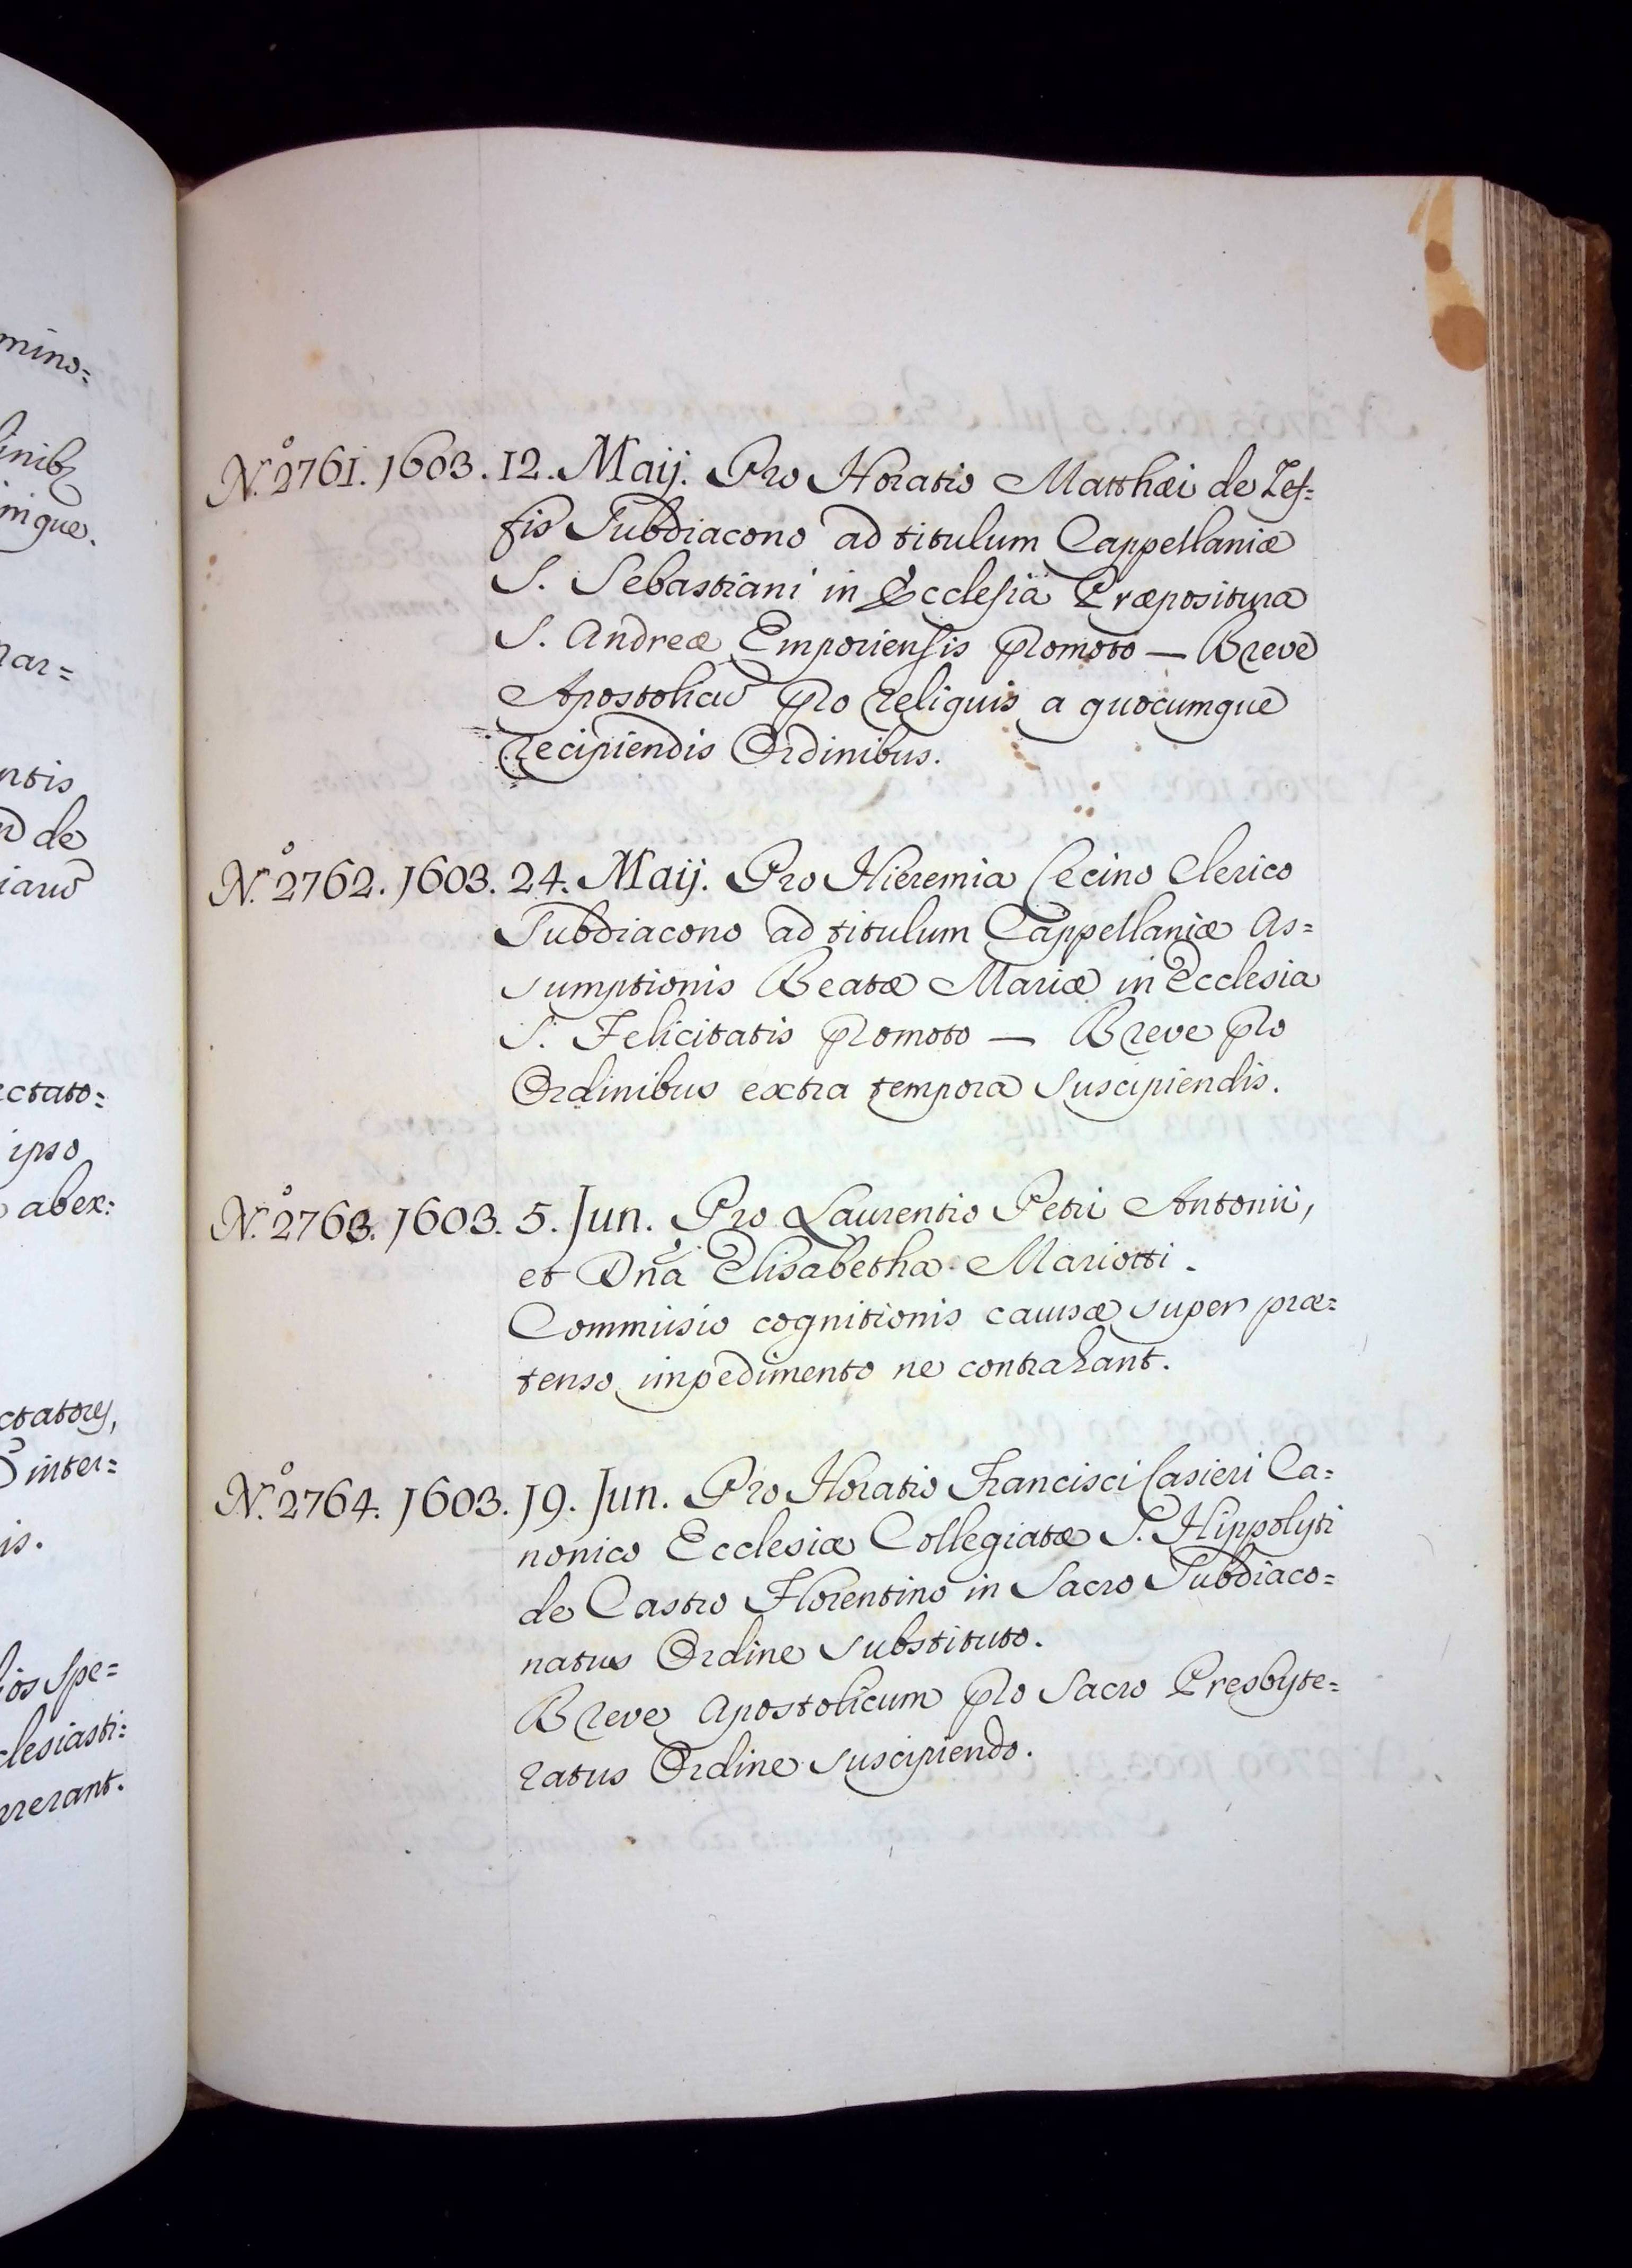 mino=
inibꝫ
inque.
ar=
ntis
de
iarū
ctato=
ipso
abex:
ctatores,
inter=
is.
ios Spe=
clesiasti=
rrerant.
N.º 2761. 1603. 12. Maij. Pro Horatio Matthæi de Zef=
fis Subdiacono ad titulum Cappellaniæ
S. Sebastiani in Ecclesia Præpositura
S. Andreæ Emporiensis promoto — Breve
Apostolicū pro reliquis a quocumque
recipiendis Ordinibus.
N.º 2762. 1603. 24. Maij. Pro Hieremia Cecino Clerico
Subdiacono ad titulum Cappellaniæ As=
sumptionis Beatæ Mariæ in Ecclesia
S. Felicitatis promoto — Breve pro
Ordinibus extra tempora suscipiendis.
N.º 2763. 1603. 5. Jun. Pro Laurentio Petri Antonii,
et Dña Elisabetha Mariotti.
Commissio cognitionis causæ super præ=
tenso impedimento ne contrahant.
N.º 2764. 1603. 19. Jun. Pro Horatio Francisci Casieri Ca=
nonico Ecclesiæ Collegiatæ S. Hippolyti
de Castro Florentino in Sacro Subdiaco=
natus Ordine substituto.
Breve Apostolicum pro Sacro Presbyte=
ratus Ordine suscipiendo.